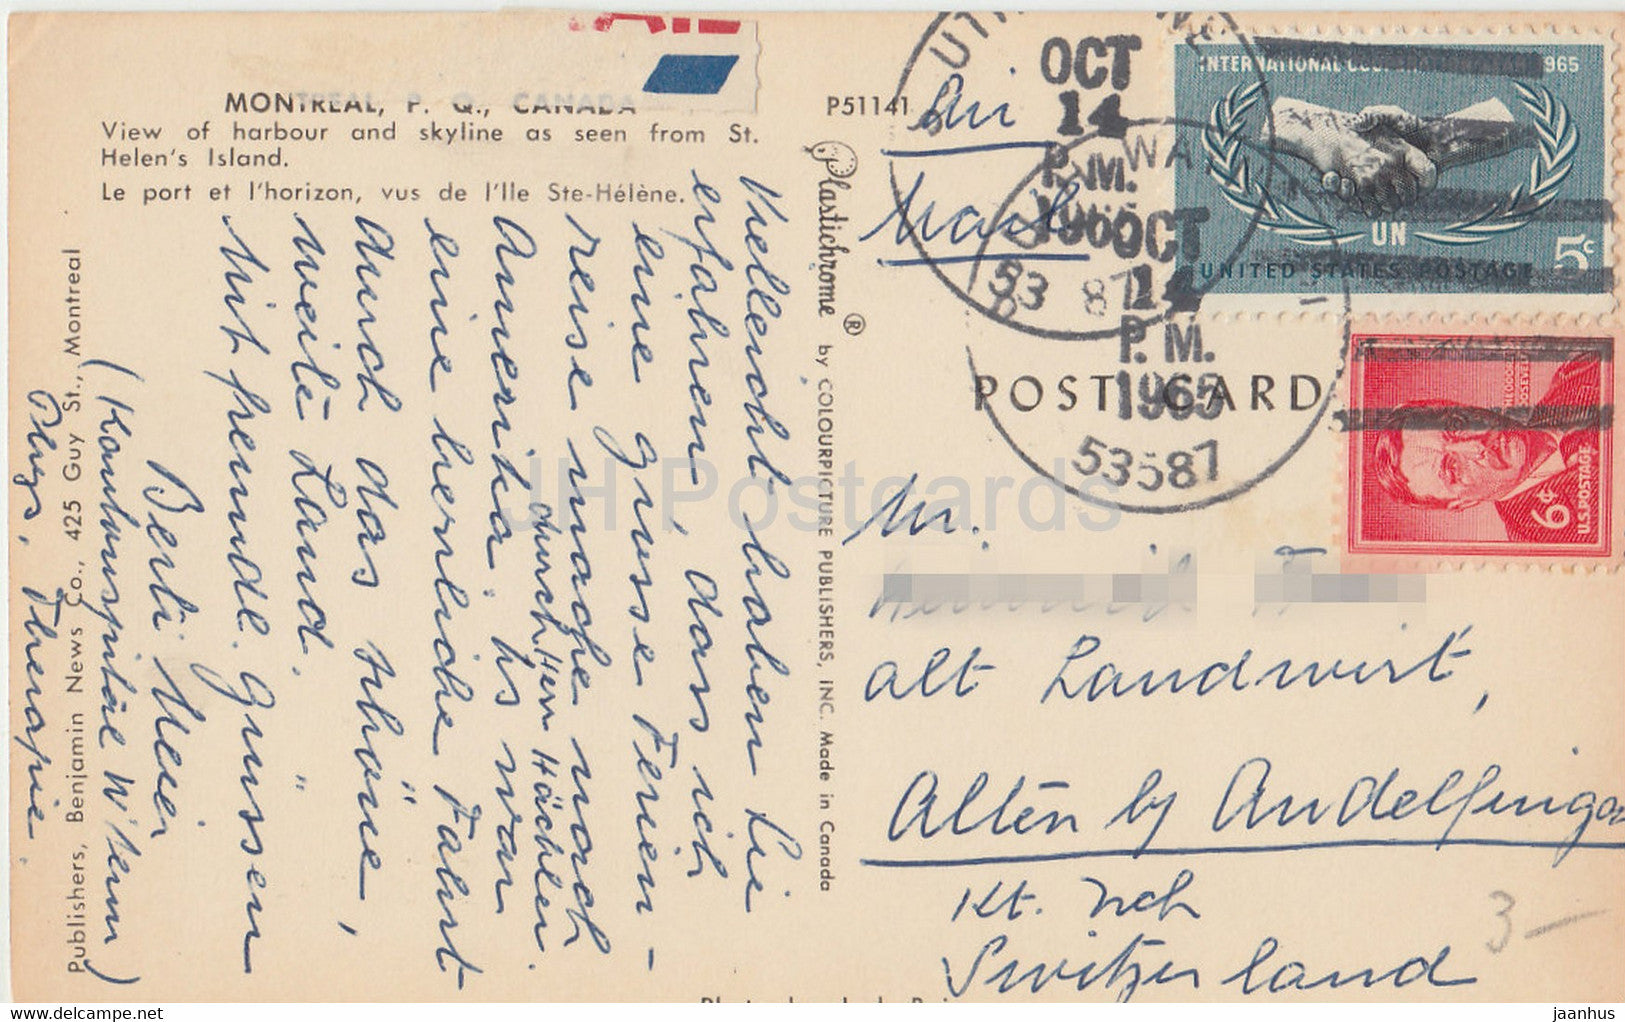 AIR
MONTREAL, P. Q., CANADA
View of harbour and skyline as seen from St.
Helen's Island.
Le port et l'horizon, vus de l'Ile Ste-Hélène.
P51141
Vielleicht haben Sie
erfahren, dass ich
eine grosse Ferien-
reise mache nach
durch Herr Hächler.
Amerika. Es war
eine herrliche Fahrt
durch das schöne,
weite Land.
Mit freundl. Grüssen
Berti Meier
(Kantonsspital W'thur)
Phys. Therapie.
Publishers, Benjamin News Co., 425 Guy St., Montreal
Plastichrome ® by COLOURPICTURE PUBLISHERS, INC. Made in Canada
Air
Mail
OCT
14
P. M.
1965
53587
OCT
14
P. M.
1965
53587
INTERNATIONAL COOPERATION YEAR 1965
UN
UNITED STATES POSTAGE 5c
THEODORE ROOSEVELT
6¢
U.S. POSTAGE
POST CARD
Mr.
alt Landwirt,
Alten by Andelfingen
Kt. Zch
Switzerland
3 –
JH Postcards
www.delcampe.net
jaanhus